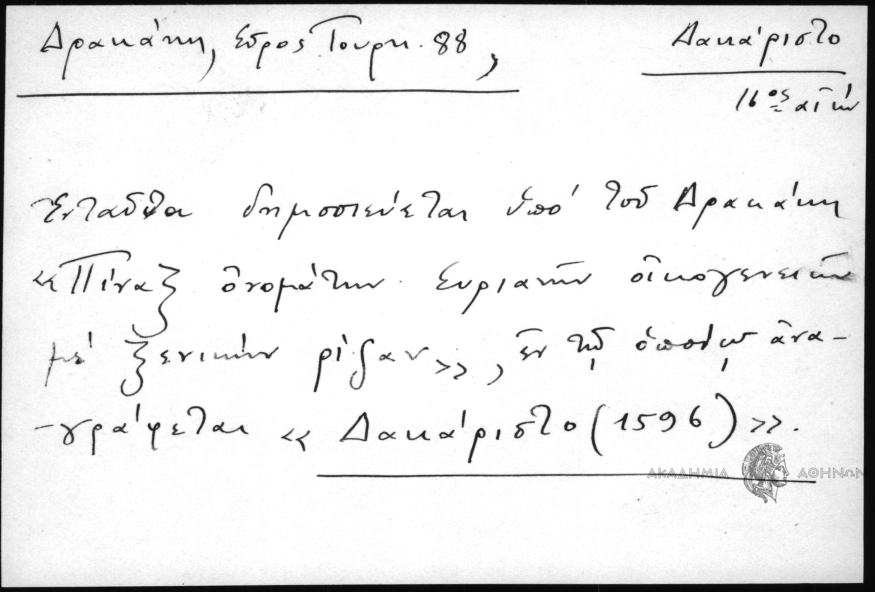 Δρακάκη, Σῦρος Τουρκ. 88,
Δακάριστο
16ος αἰών
Ἐνταῦθα δημοσιεύεται ὑπό τοῦ Δρακάκη
«Πίναξ ὀνομάτων Συριανῶν οἰκογενειῶν
μέ ξενικήν ρίζαν», ἐν τῷ ὁποίῳ ἀνα-
-γράφεται «Δακάριστο (1596)».
ΑΚΑΔΗΜΙΑ ΑΘΗΝΩΝ